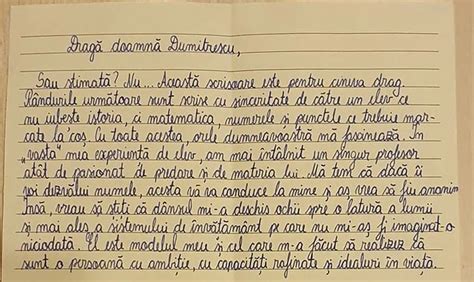 Dragă doamnă Dumitrescu,
Sau stimată? Nu... Această scrisoare este pentru cineva drag.
Rândurile următoare sunt scrise cu sinceritate de către un elev ce
nu iubește istoria, ci matematica, numerele și punctele ce trebuie mar-
cate la coș. Cu toate acestea, orele dumneavoastră mă fascinează. În
„vasta” mea experiență de elev, am mai întâlnit un singur profesor
atât de pasionat de predare și de materia lui. Mă tem că dacă îi
voi dezvălui numele, acesta vă va conduce la mine și aș vrea să fiu anonim
Însă, vreau să știți că dânsul mi-a deschis ochii spre o latură a lumii
și mai ales a sistemului de învățământ pe care nu mi-aș fi imaginat-o
niciodată. El este modelul meu și cel care m-a făcut să realizez că
sunt o persoană cu ambiție, cu capacități rafinate și idealuri în viață.